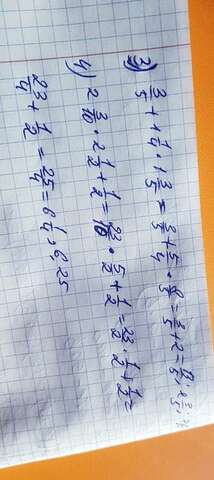 3) 3/5 + 1 1/4 · 1 3/5 = 3/5 + 5/4 · 8/5 = 3/5 + 2 = 13/5; 2 3/5;
4) 2 3/10 · 2 1/2 + 1/2 = 23/10 · 5/2 + 1/2 = 23/2 · 1/2 + 1/2 =
23/4 + 1/2 = 25/4 = 6 1/4; 6,25